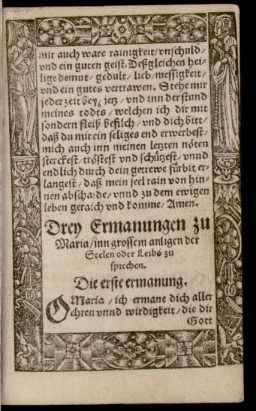 mir auch ware rainigkeit/ vnschuld/
vnd ein guten geist. Deßgleichen hei-
lige demut/ gedult/ lieb/ messigkeit/
vnd ein gutes vertrawen. Stehe mir
jeder zeit bey/ jetz/ vnd inn der stund
meines todes/ welchen ich dir mit
sondern fleiß befilch/ vnd dich bitt/
daß du mir ein seliges end erwerbest/
mich auch inn meinen letzten nöten
sterckest/ tröstest vnd schützest/ vnnd
endlich durch dein getrewe fürbit er-
langest/ daß mein seel rain von hin-
nen abschaide/ vnnd zu dem ewigen
leben gerad vnd komme/ Amen.
Drey Ermanungen zu
Maria/ inn grossem anligen der
Seelen oder Leibs zu
sprechen.
Die erste ermanung.
O Maria/ ich ermane dich aller
ehren vnnd wirdigkeit/ die dir
Gott